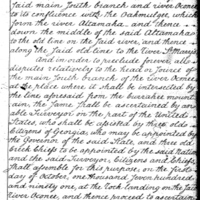 said main South branch and river Oconee
to its confluence with the Oakmulgee, which
form the river Altamaha and thence
down the middle of the said Altamahao
to the old line on the said river, and thence
along the said old line to the river
And in order to preclude forever all
disputes relatively to the head or source of
the main South branch of the river Oconee
at the place where it shall be intersected by
the line aforesaid from the Currahee moun-
tain, the same shall be ascertained by an
able Surveyor on the part of the United
States, who shall be assisted by three old
Citizens of Georgia, who may be appointed by
the Governor of the said State, and three old
Creek Chiefs to be appointed by the said Nation
and the said Surveyor, Citizens and Chiefs
shall assemble for this purpose, on the first
day of October, one thousand seven hundred
and ninety one, at the Rock Landing on the said
river Oconee, and thence proceed to ascertain